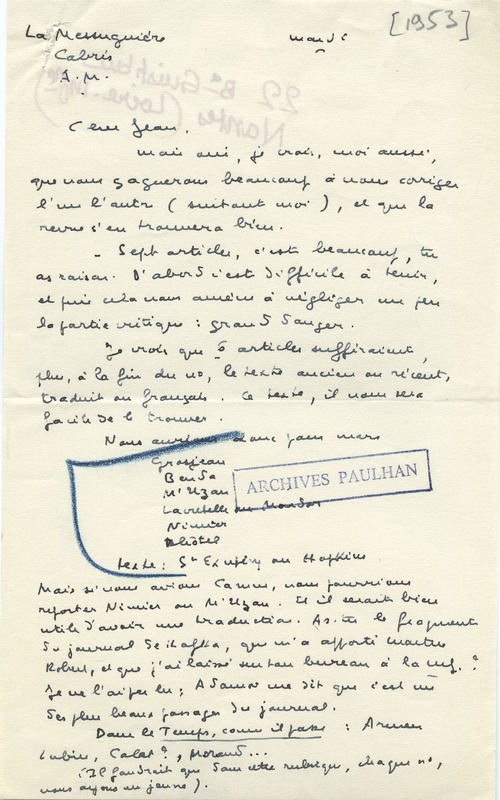 [1953]
La Messuguière
mardi
Cabris
A.M.
22 Bd Guist'hau
Nantes (Loire-Inf.)
Cher Jean,
mais oui, je crois, moi aussi,
que nous gagnerons beaucoup à nous corriger
l'un l'autre (surtout moi), et que la
revue s'en trouvera bien.
- Sept articles, c'est beaucoup, tu
as raison. D'abord c'est difficile à tenir,
et puis cela nous amène à négliger un peu
la partie critique : grand danger.
Je crois que 6 articles suffiraient,
plus, à la fin du no, le texte ancien ou récent,
traduit ou français. Ce texte, il nous sera
facile de le trouver.
Nous aurions donc pour mars
Grosjean
Benda
M'Uzan
ARCHIVES PAULHAN
Lacretelle ou Mondor
Nimier
Dhôtel
texte : St Exupéry ou Hopkins
Mais si nous avions Camus, nous pourrions
reporter Nimier ou M'Uzan. Et il serait bien
utile d'avoir une traduction. As-tu le fragment
du journal de Kafka, que m'a apporté Marthe
Robert, et que j'ai laissé sur ton bureau à la nrf ?
Je ne l'ai pas lu ; Adamov me dit que c'est un
des plus beaux passages du journal.
Dans le Temps, comme il passe : Armen
Lubin, Calet ?, Morand...
(Il faudrait que dans cette rubrique, chaque no,
nous ayons un jeune).